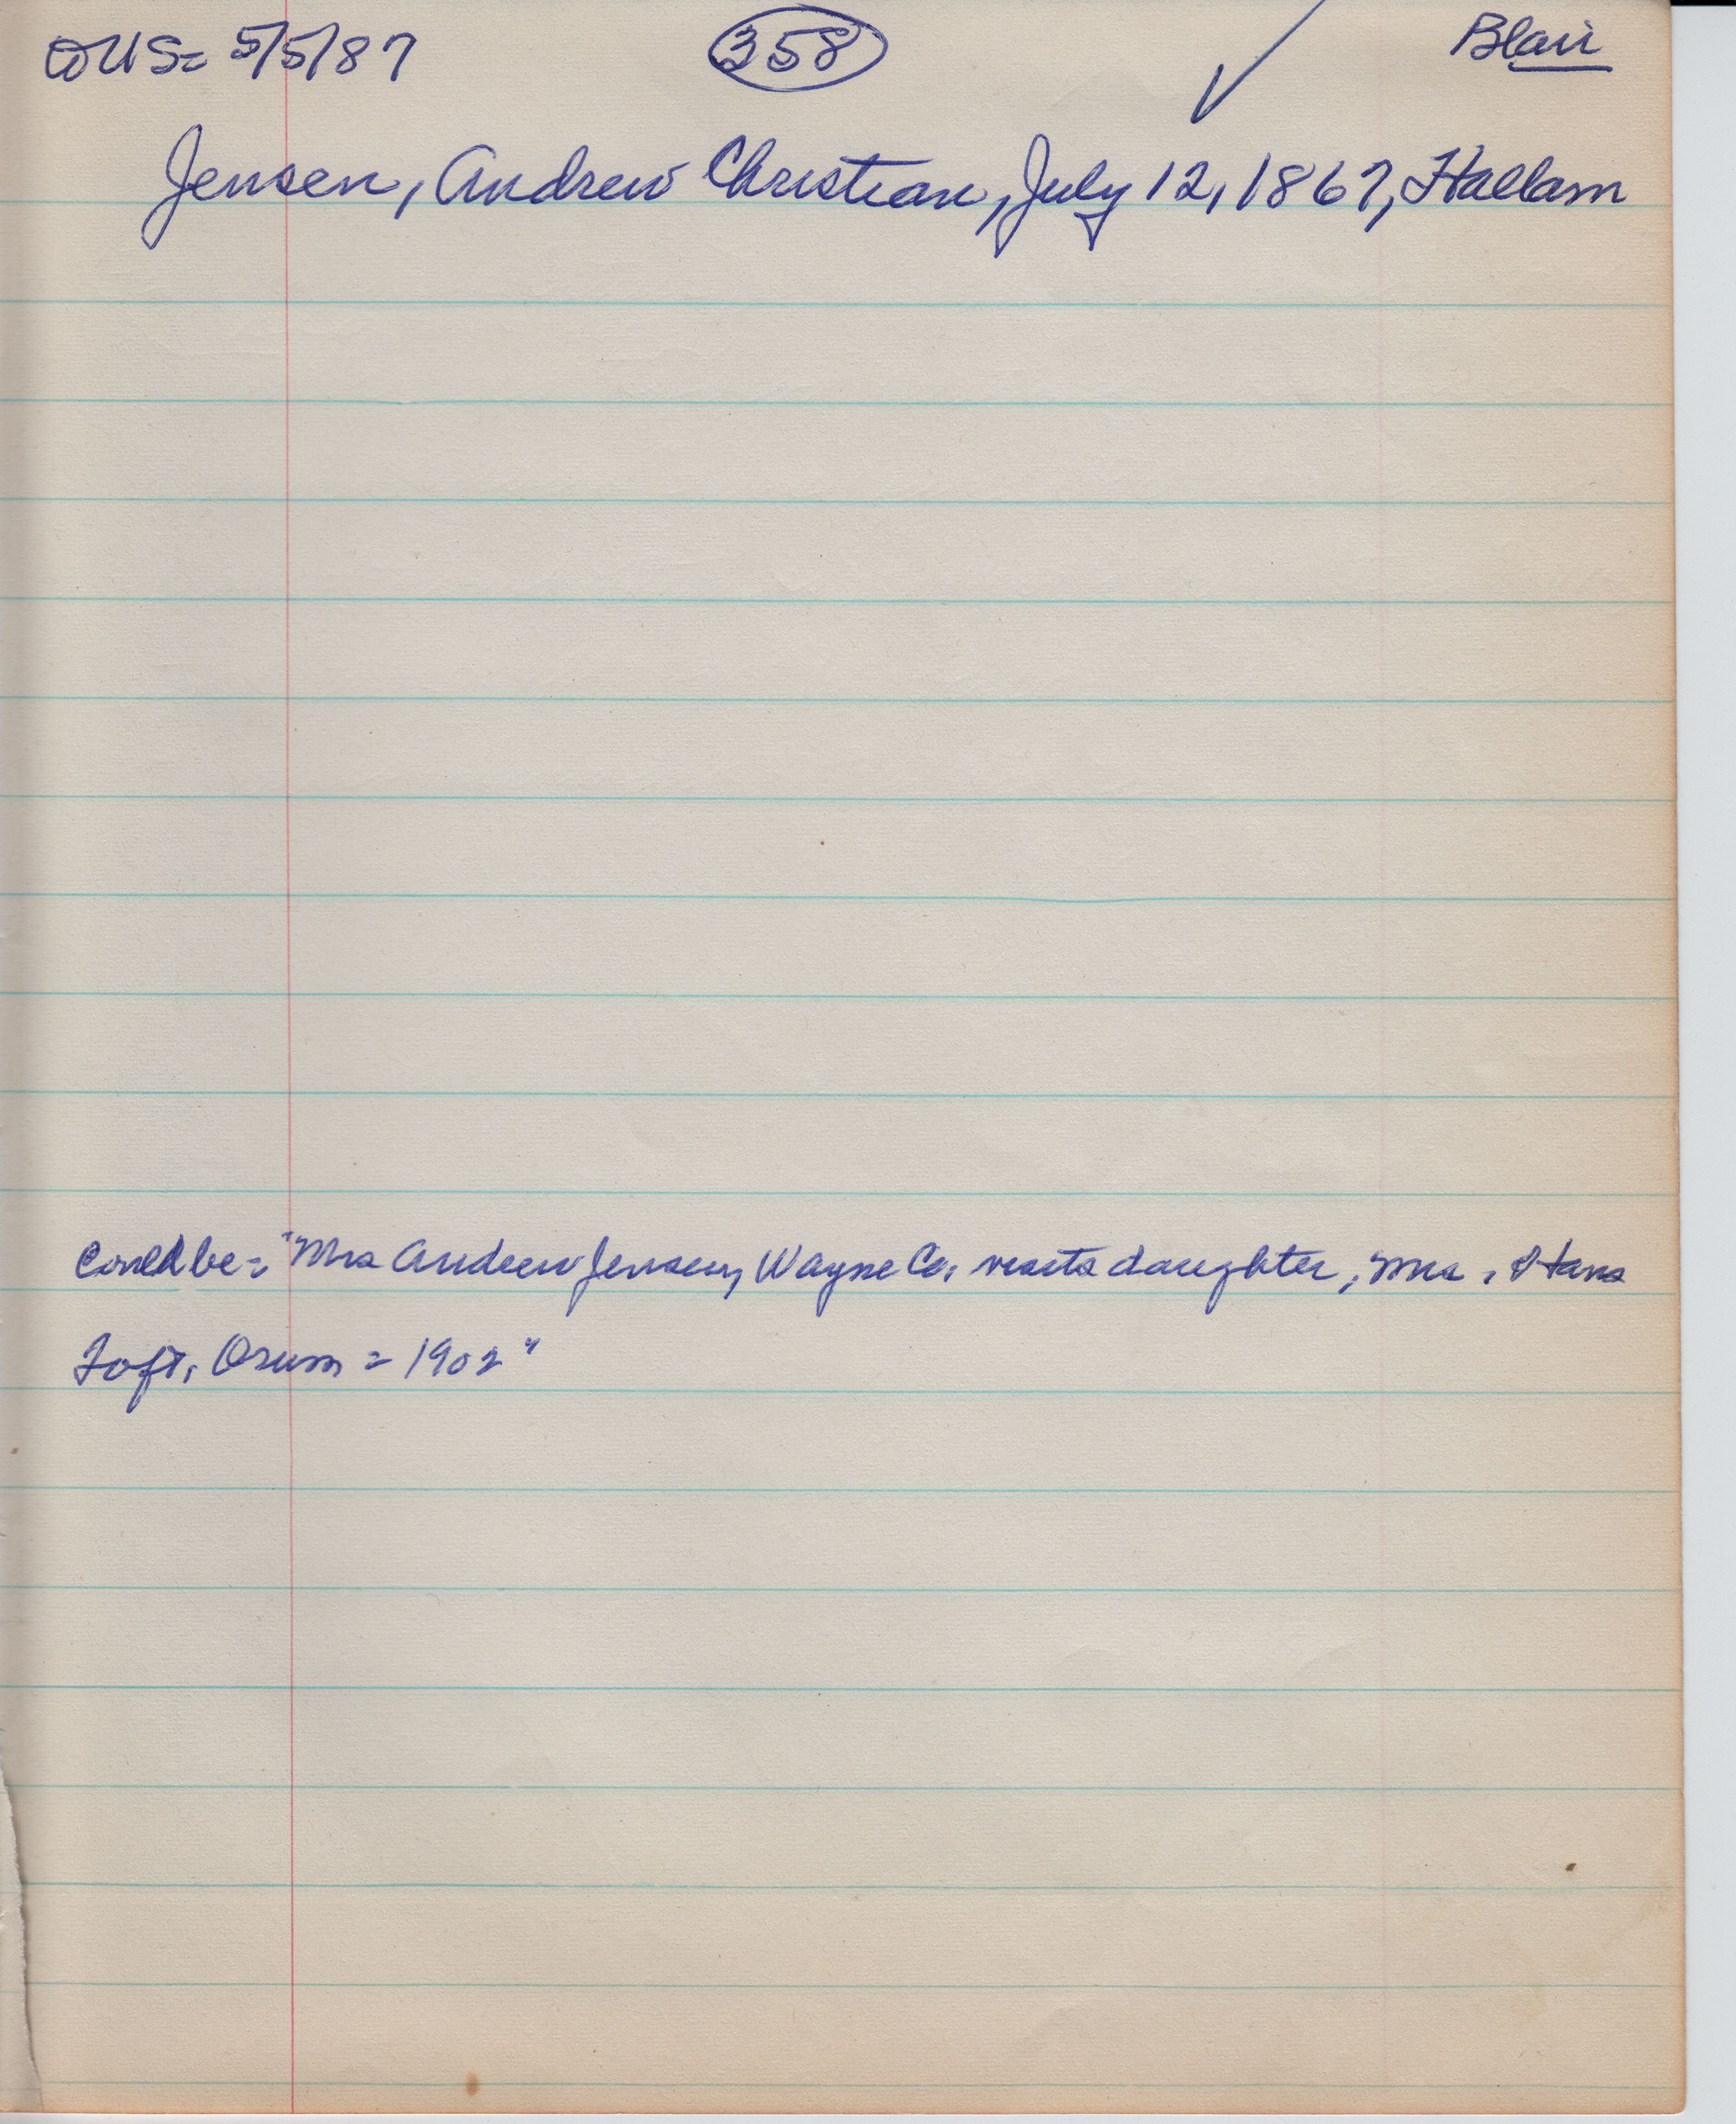 OUS= 5/5/87 358 Blair
Jensen, Andrew Christian, July 12, 1867, Hallam
Could be= "Mrs Andrew Jensen, Wayne Co. visits daughter, Mrs. Hans
Toft, Orum = 1902"